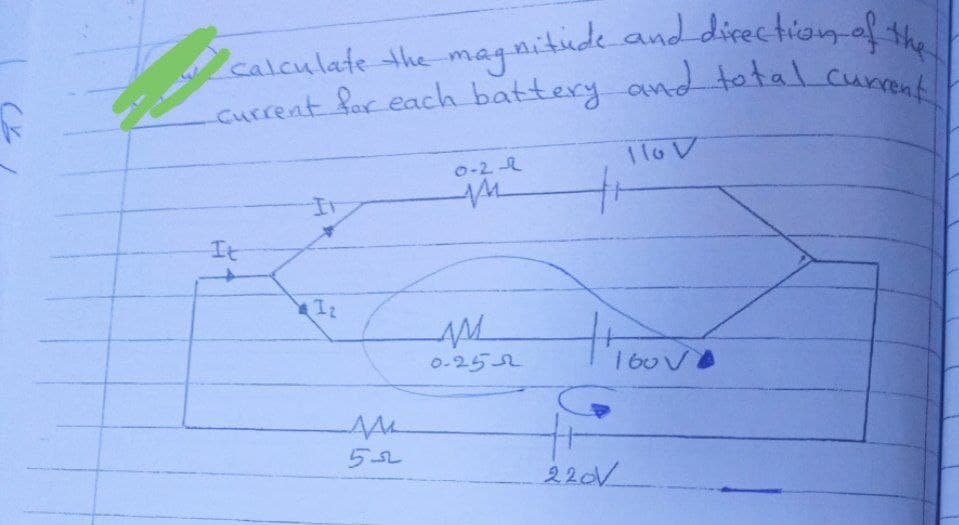 calculate the magnitude and direction of the
current for each battery and total current
0-2 Ω
110 V
I1
It
I2
0-25 Ω
160 V
5 Ω
220V